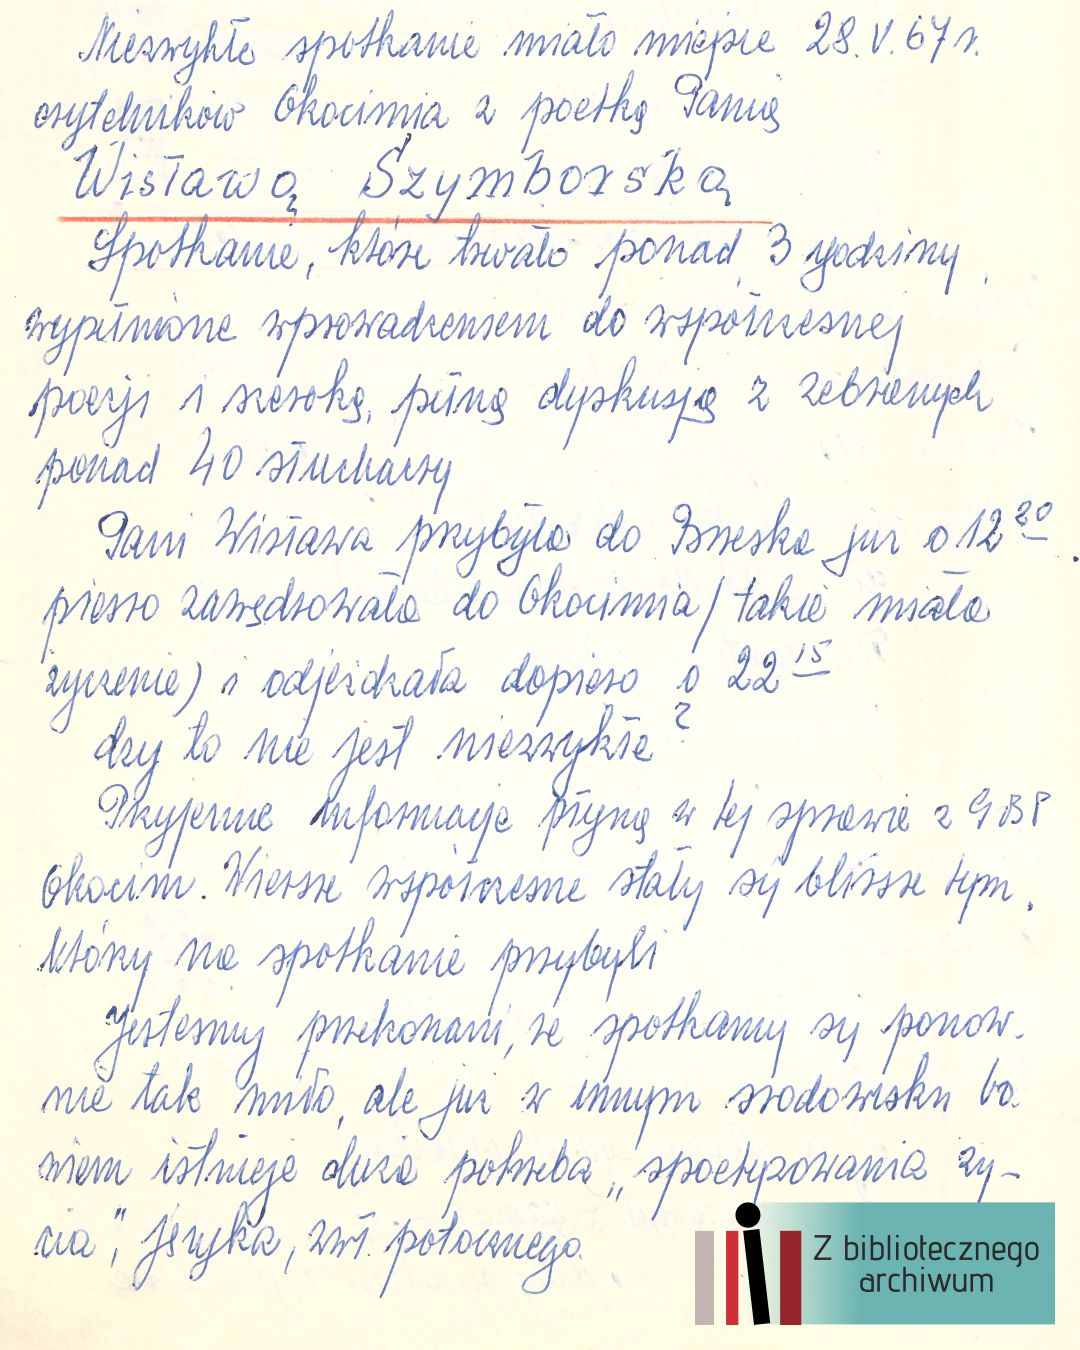 Niezwykłe spotkanie miało miejsce 28.V.67 r.
czytelników Okocimia z poetką Panią
Wisławą Szymborską
Spotkanie, które trwało ponad 3 godziny
wypełnione wprowadzeniem do współczesnej
poezji i szeroką, pełną dyskusją z zebranych
ponad 40 słuchaczy
Pani Wisława przybyła do Brzeska już o 12 20
pieszo zawędrowała do Okocimia / takie miała
życzenie) i odjeżdżała dopiero o 22 15
Czy to nie jest niezwykłe?
Przyjemne informacje płyną w tej sprawie z GBP
Okocim. Wiersze współczesne stały się bliższe tym,
którzy na spotkanie przybyli
Jesteśmy przekonani, że spotkamy się ponow-
nie tak miło, ale już w innym środowisku bo
wiem istnieje duża potrzeba „spoetyzowania ży-
cia", języka, zwł. potocznego.
Z bibliotecznego
archiwum